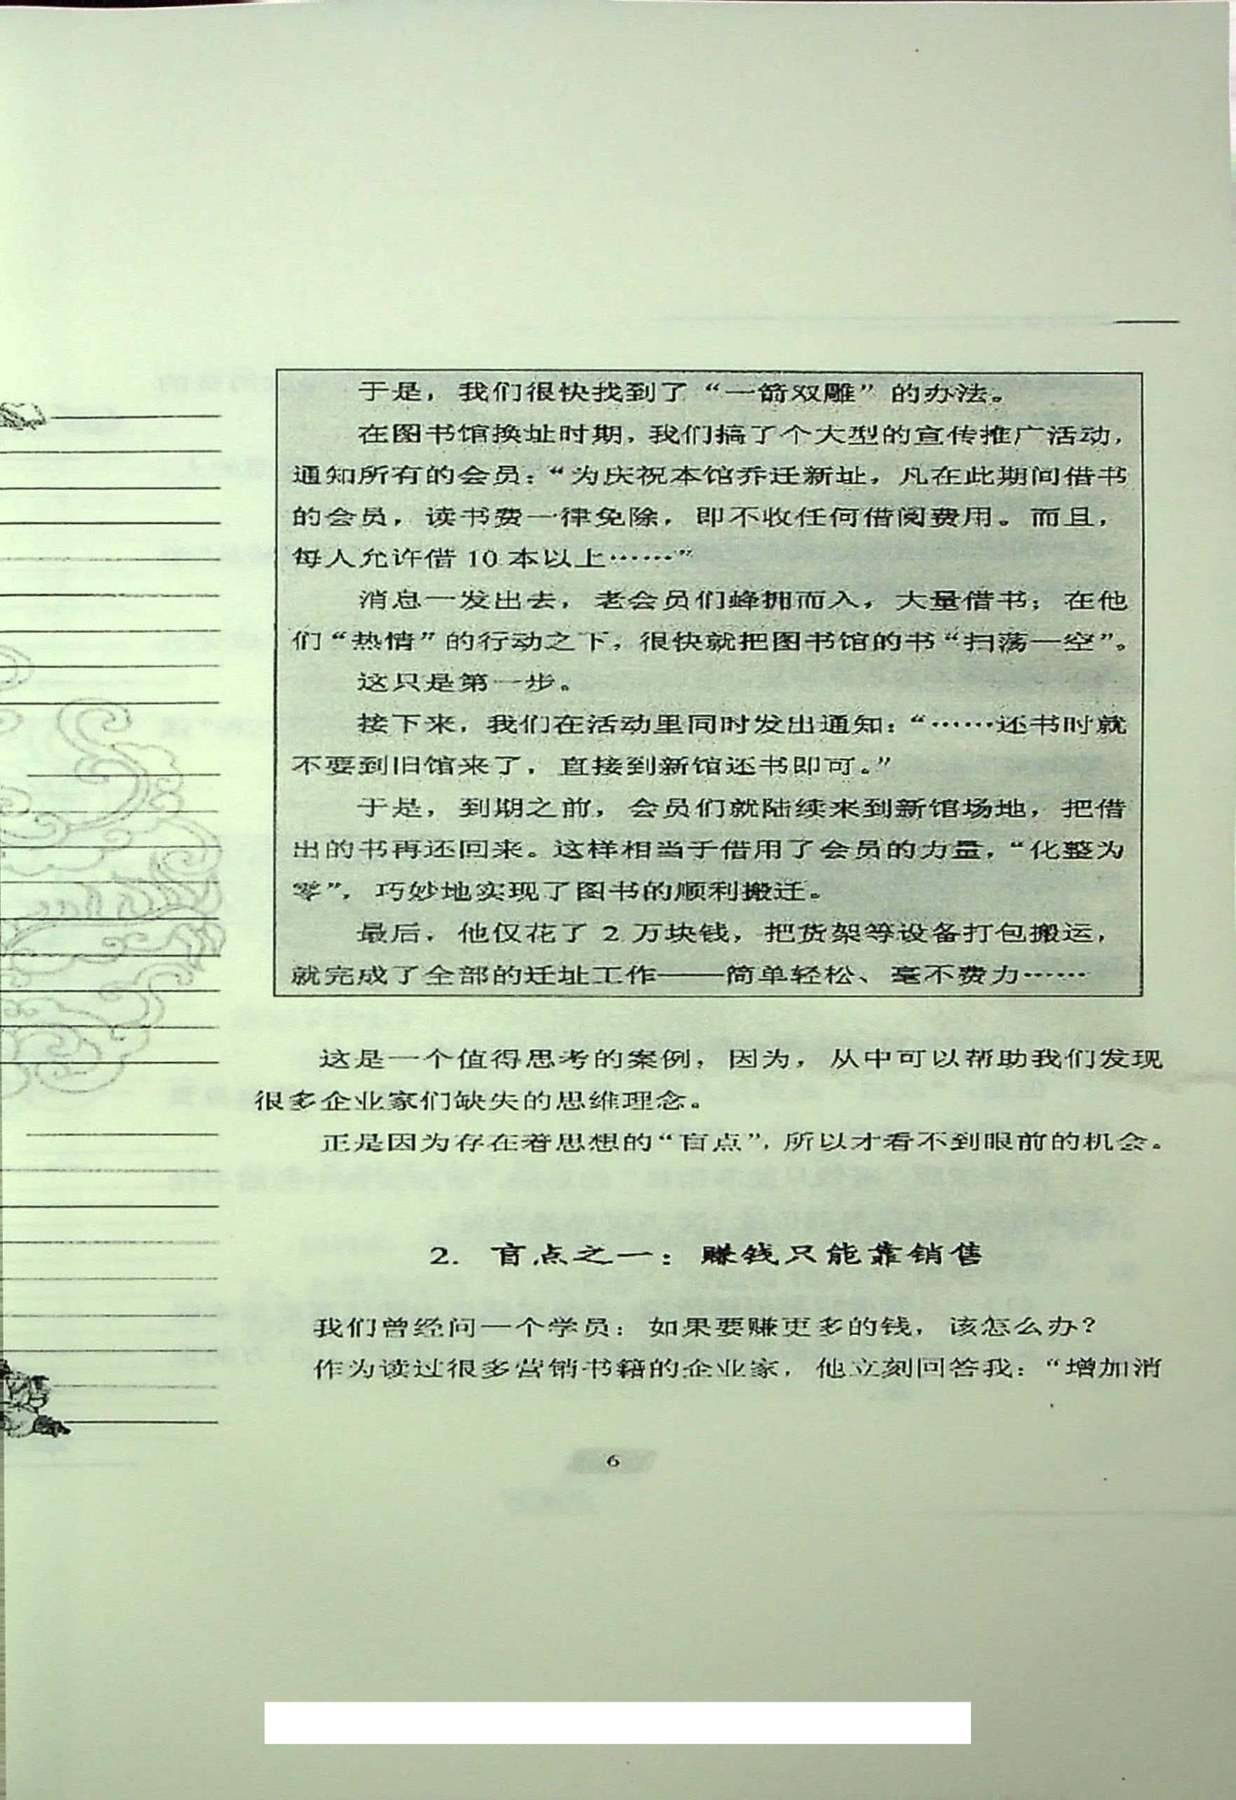 于是，我们很快找到了“一箭双雕”的办法。
在图书馆换址时期，我们搞了个大型的宣传推广活动，
通知所有的会员：“为庆祝本馆乔迁新址，凡在此期间借书
的会员，读书费一律免除，即不收任何借阅费用。而且，
每人允许借 10 本以上……”
消息一发出去，老会员们蜂拥而入，大量借书；在他
们“热情”的行动之下，很快就把图书馆的书“扫荡一空”。
这只是第一步。
接下来，我们在活动里同时发出通知：“……还书时就
不要到旧馆来了，直接到新馆还书即可。”
于是，到期之前，会员们就陆续来到新馆场地，把借
出的书再还回来。这样相当于借用了会员的力量，“化整为
零”，巧妙地实现了图书的顺利搬迁。
最后，他仅花了 2 万块钱，把货架等设备打包搬运，
就完成了全部的迁址工作——简单轻松、毫不费力……
这是一个值得思考的案例，因为，从中可以帮助我们发现
很多企业家们缺失的思维理念。
正是因为存在着思想的“盲点”，所以才看不到眼前的机会。
2. 盲点之一：赚钱只能靠销售
我们曾经问一个学员：如果要赚更多的钱，该怎么办？
作为读过很多营销书籍的企业家，他立刻回答我：“增加消
6